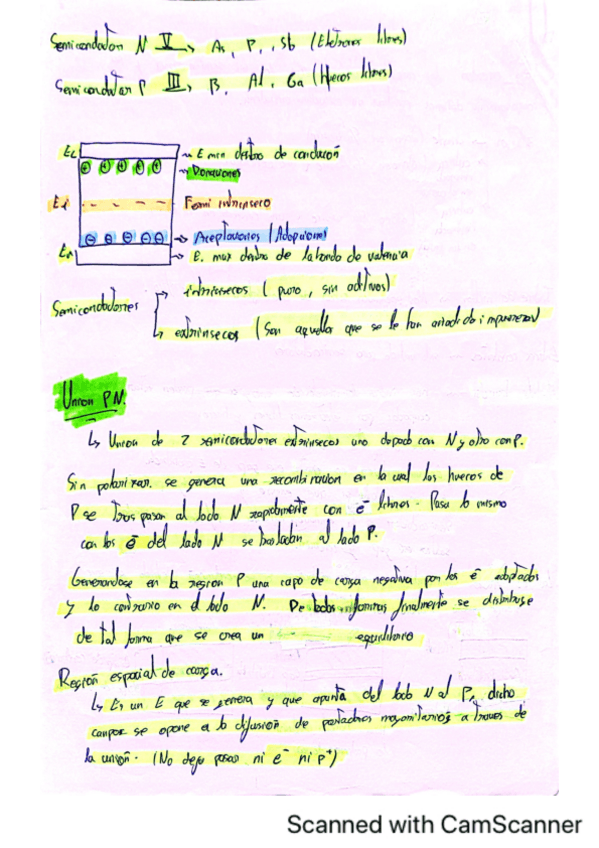 Semiconductor N V → As, P, Sb (Eletrones libres)
Semiconductor P III → B, Al, Ga (Huecos libres)
Ec → E min dentro de conducción
→ Donaciones
Ei Fermi intrinseco
→ Aceptaciones (Adopciones)
Ev → E. max dentro de la banda de valencia
Semicondutores → intrinsecos (puro, sin aditivos)
↳ extrinsecos (Son aquellos que se le han añadido impurezas)
Union PN.
↳ Union de 2 semicondutores extrinsecos uno dopado con N y otro con P.
Sin polarizar. se genera una recombinacion en la cual los huecos de
P se traspasan al lado N rapidamente con e⁻ libres. Pasa lo mismo
con los e⁻ del lado N se trasladan al lado P.
Generandose en la region P una capa de carga negativa por los e⁻ adoptados
y lo contrario en el lado N. De todas formas finalmente se distribuye
de tal forma que se crea un equilibrio
Región espacial de carga.
↳ Es un E que se genera y que apunta del lado N al P, dicho
campo se opone a la difusión de portadores mayoritarios a traves de
la unión. (No deja pasar ni e⁻ ni p⁺)
Scanned with CamScanner